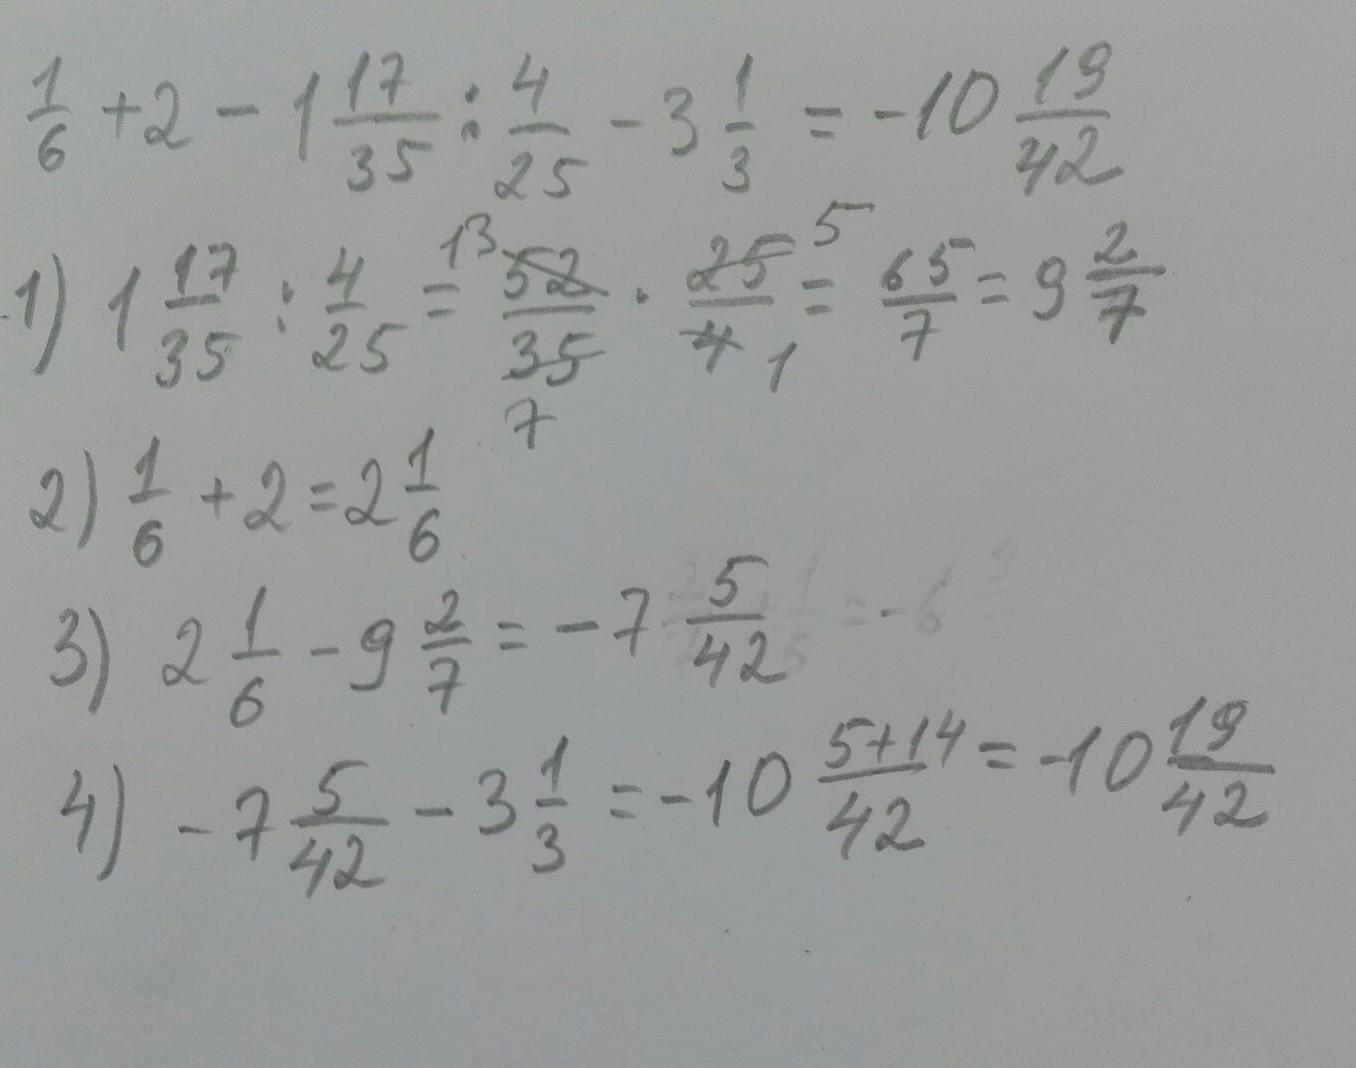 1/6 + 2 - 1 17/35 : 4/25 - 3 1/3 = -10 19/42
1) 1 17/35 : 4/25 = 13 52/35 7 · 25/4 5 1 = 65/7 = 9 2/7
2) 1/6 + 2 = 2 1/6
3) 2 1/6 - 9 2/7 = -7 5/42
4) -7 5/42 - 3 1/3 = -10 5+14/42 = -10 19/42